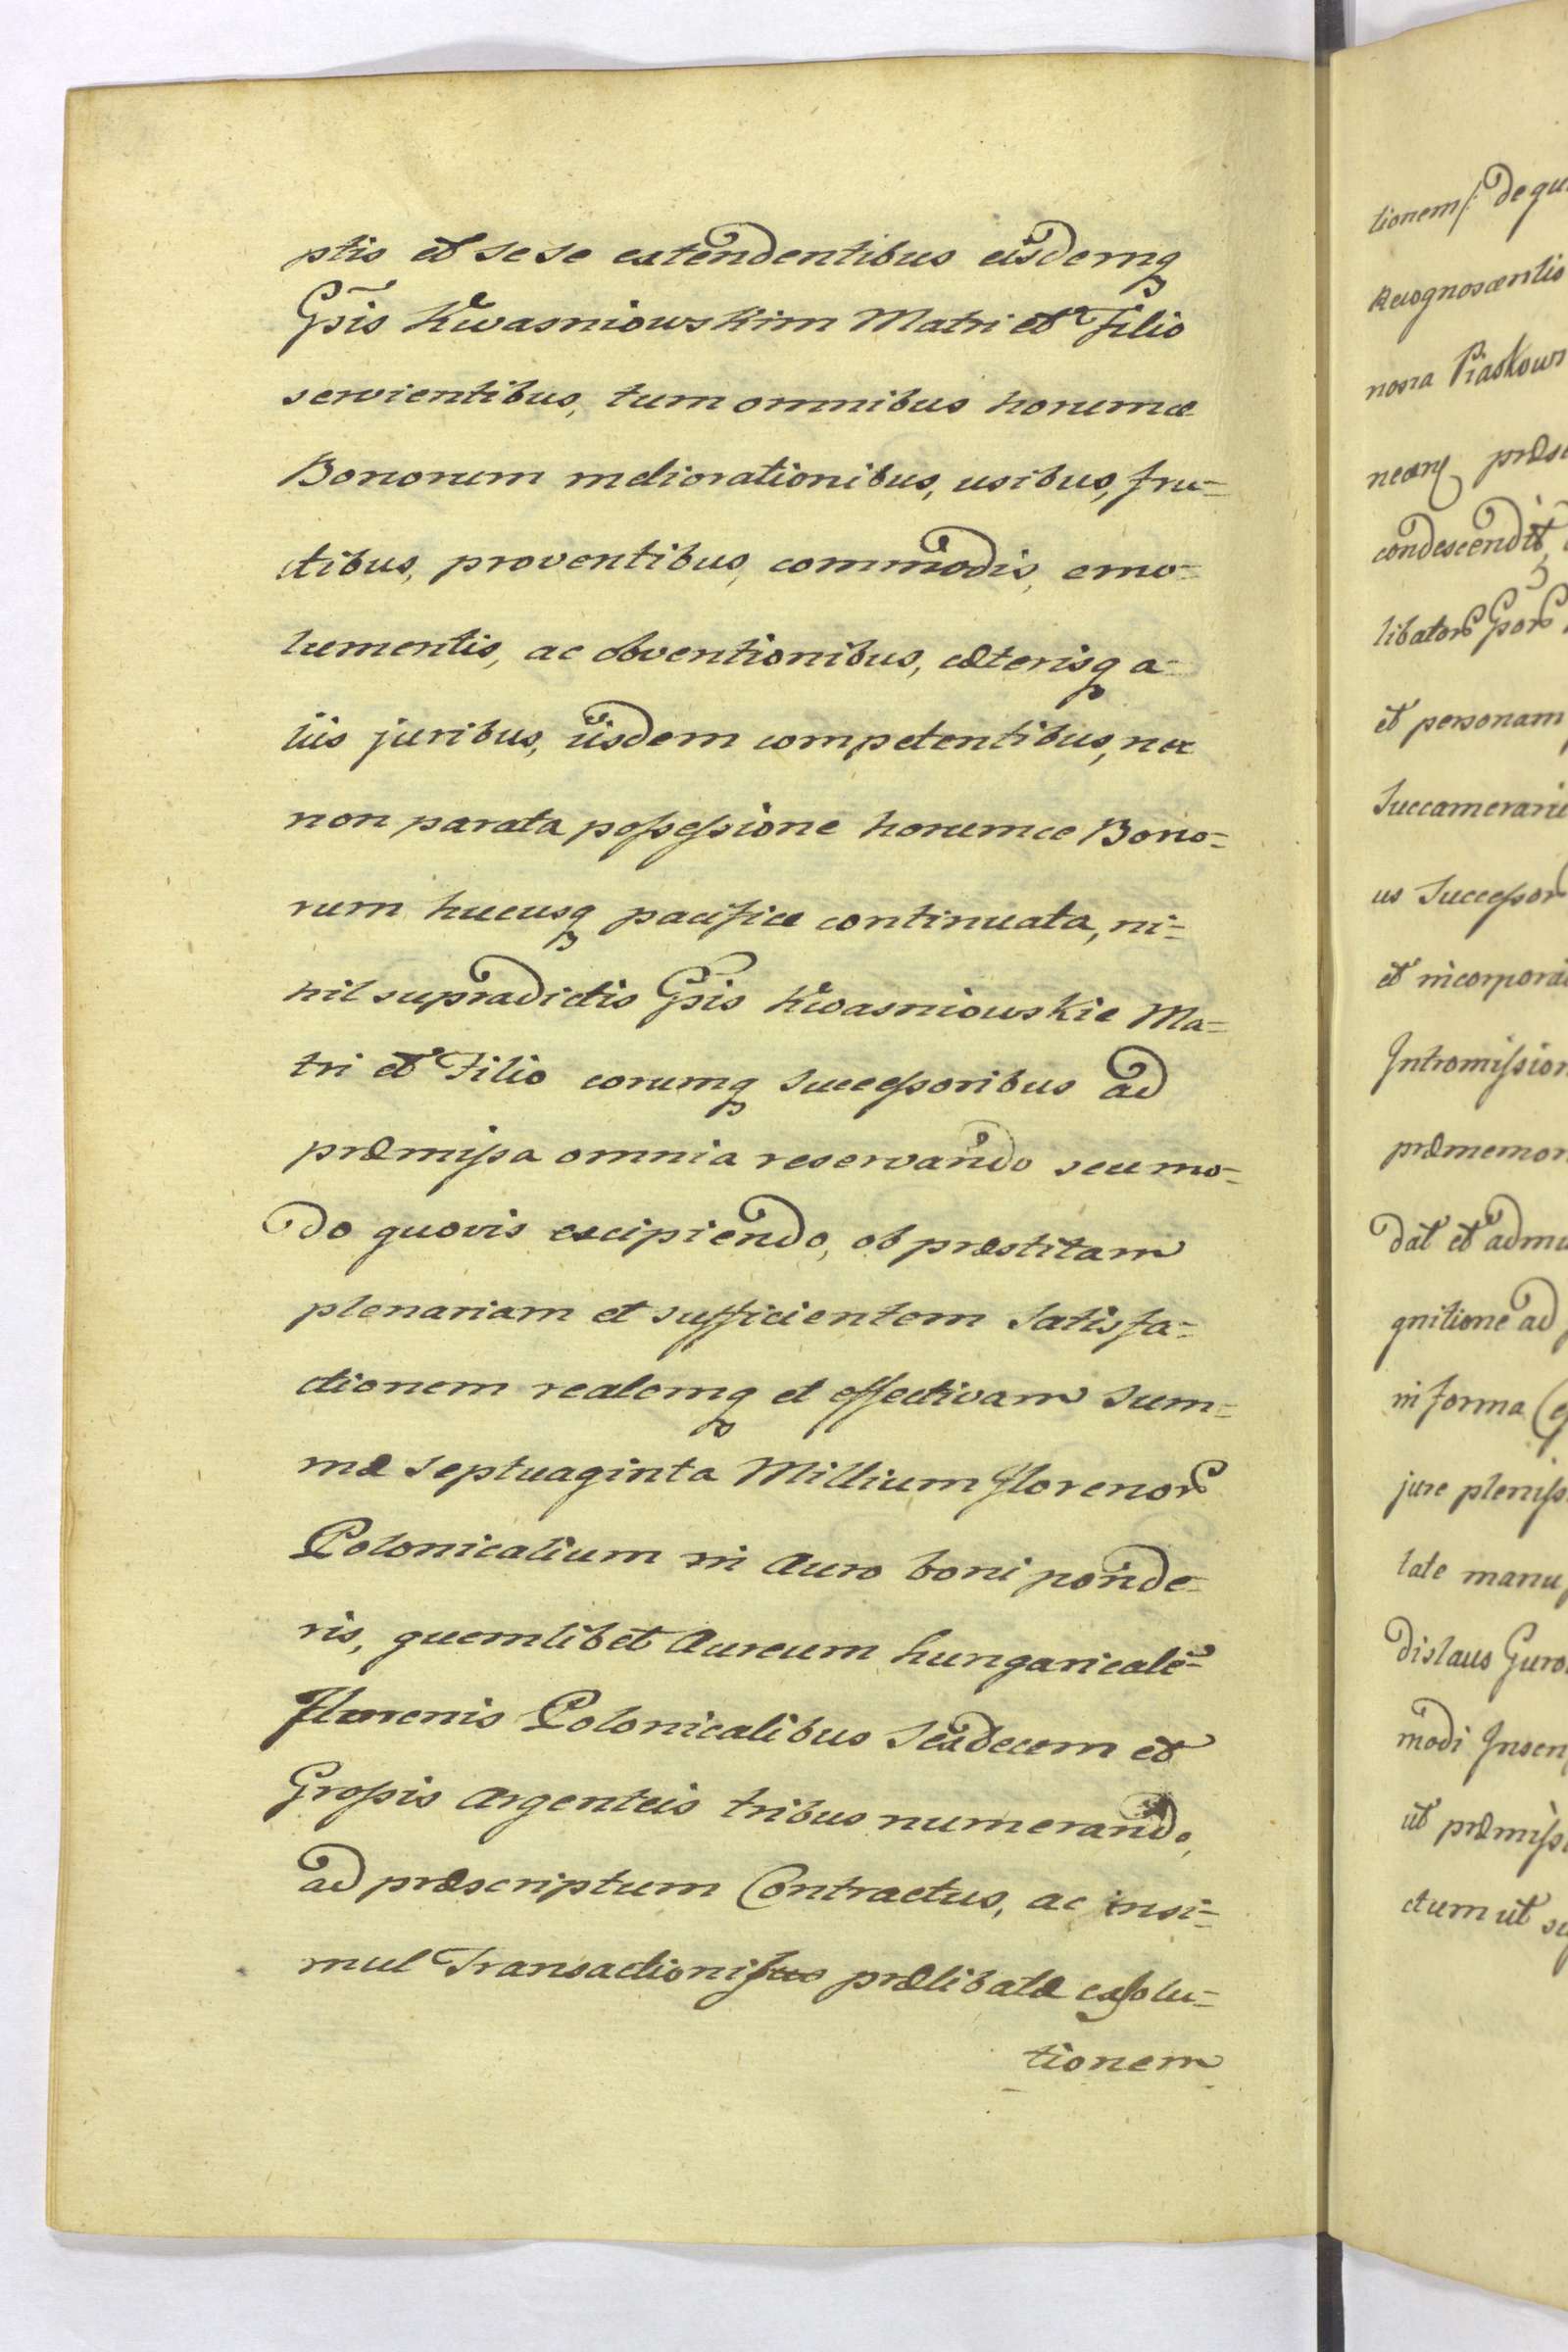 ptis et sese extendentibus eisdemq
Gsis Kwasniowskim Matri et Filio
servientibus, tum omnibus horumce
Bonorum meliorationibus, usibus, fru=
ctibus, proventibus, commodis, emo=
lumentis, ac obventionibus, cæterisq a=
liis juribus, iisdem competentibus, nec
non parata possessione horumce Bono=
rum hucusq pacifice continuata, ni=
hil supradictis Gsis Kwasniowskie Ma=
tri et Filio eorumq Successoribus ad
præmissa omnia reservando seu mo=
do quovis excipiendo, ob præstitam
plenariam et sufficientem Satisfa=
ctionem realemq et effectivam Sum=
mæ Septuaginta Millium florenor
Polonicalium in Auro boni ponde=
ris, quemlibet Aureum hungaricale=
Florenis Polonicalibus Sexdecem et
Grossis Argenteis tribus numerando,
ad præscriptum Contractus, ac insi=
mul Transactionis prælibatæ exsolu=
tionem
tionem/: de qu
Recognoscentis
nowa Piaskows
neorq præs
condescendit,
libator Gsor
et personam
Succamerarii
us Successor
et incorpora
Intromission
præmemor
dat et admi
gnitione ad
in forma
jure pleniss
late manu
dislaus Guro
modi Inscri
ut præmiss
ctum ut su